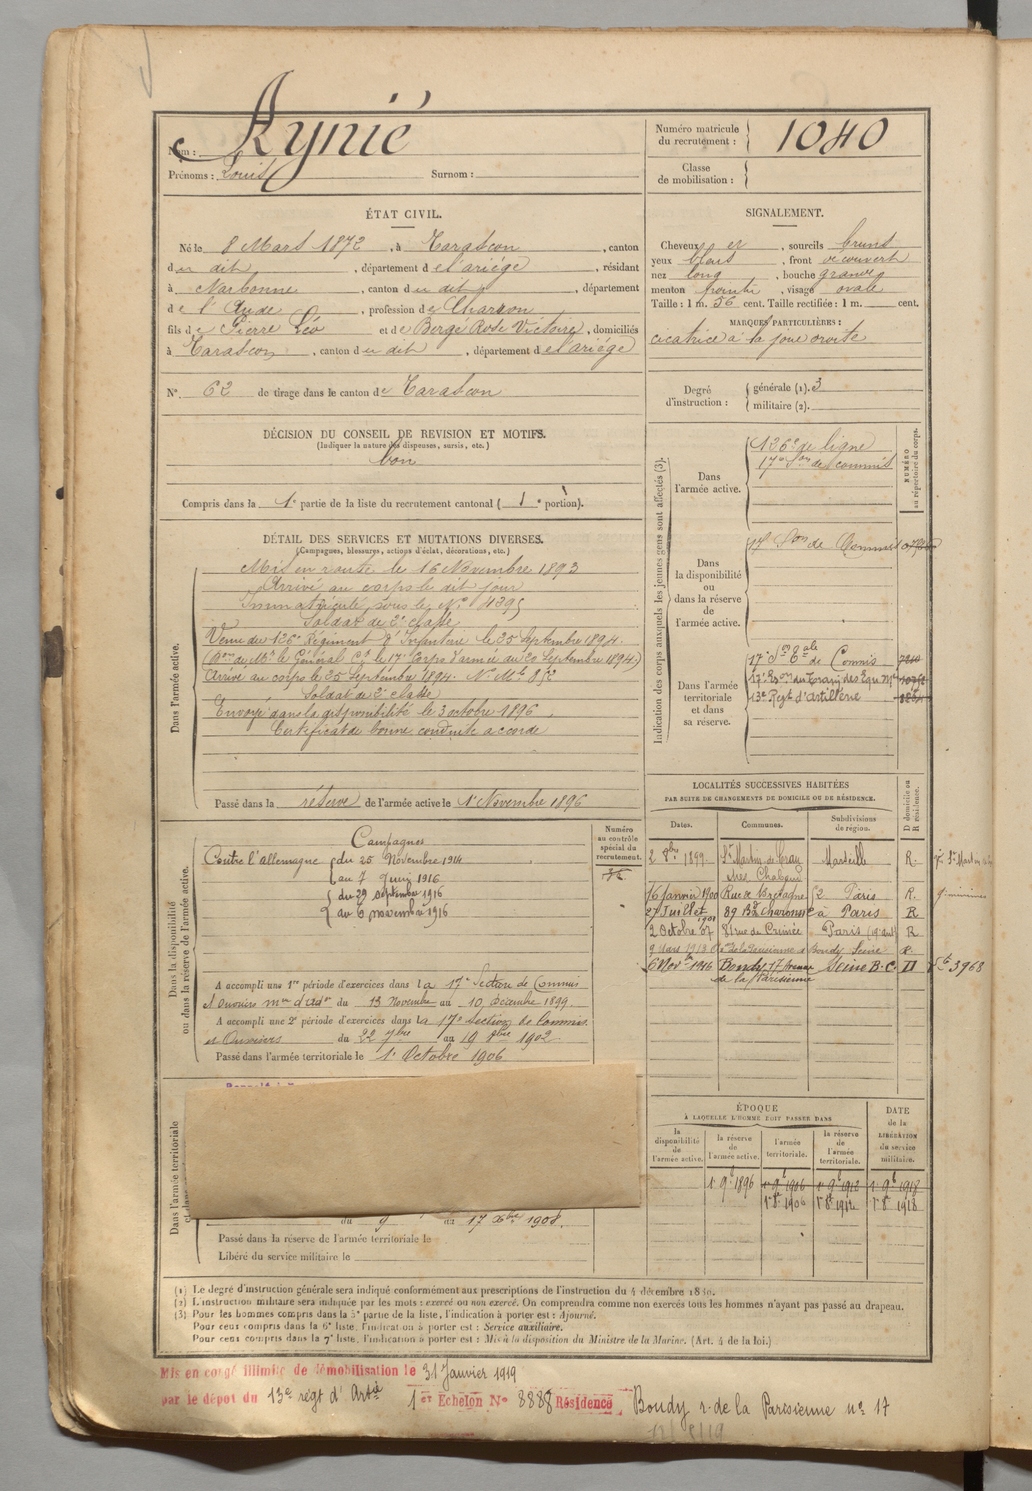 Rynié
Nom :
Numéro matricule
du recrutement :
1040
Prénoms : Louis Surnom :
Classe
de mobilisation :
ÉTAT CIVIL.
Né le 8 Mars 1872, à Tarascon, canton
du dit, département de l'ariége, résidant
à Narbonne, canton du dit, département
de l'Aude, profession de Charron
fils de Pierre Léo et de Bergé Rose Victoire, domiciliés
à Tarascon, canton du dit, département de l'ariége
N° 62 de tirage dans le canton de Tarascon
SIGNALEMENT.
Cheveux et, sourcils bruns
yeux bleus, front découvert
nez long, bouche grande
menton pointu, visage ovale
Taille : 1 m. 56 cent. Taille rectifiée : 1 m. cent.
MARQUES PARTICULIÈRES :
cicatrice à la joue droite
Degré
d'instruction :
générale (1). 3
militaire (2).
DÉCISION DU CONSEIL DE REVISION ET MOTIFS.
(Indiquer la nature des dispenses, sursis, etc.)
bon
Compris dans la 1e partie de la liste du recrutement cantonal ( 1e portion).
DÉTAIL DES SERVICES ET MUTATIONS DIVERSES.
(Campagnes, blessures, actions d'éclat, décorations, etc.)
Dans l'armée active.
Mis en route le 16 Novembre 1893
Arrivé au corps le dit jour
Immatriculé sous le N° 4395
Soldat de 2e classe
Venu du 126e Régiment d'Infanterie le 25 Septembre 1894.
(Don de Mr le Général Ct le 17e Corps d'armée du 20 Septembre 1894.)
Arrivé au corps le 25 Septembre 1894. N° Mle 852
Soldat de 2e classe
Envoyé dans la disponibilité le 3 octobre 1896
Certificat de bonne conduite accordé
Passé dans la réserve de l'armée active le 1er Novembre 1896
Indication des corps auxquels les jeunes gens sont affectés (3).
NUMÉRO
au répertoire du corps.
Dans
l'armée active.
126e de ligne
17e Son de commis
Dans
la disponibilité
ou
dans la réserve
de
l'armée active.
17e Son de Commis
Dans l'armée
territoriale
et dans
sa réserve.
17e Son Eale de Commis 7210
17e Eson du Train des Equ. Mres
13e Regt d'Artillerie
LOCALITÉS SUCCESSIVES HABITÉES
PAR SUITE DE CHANGEMENTS DE DOMICILE OU DE RÉSIDENCE.
Dates.
Communes.
Subdivisions
de région.
D domicile ou
R résidence.
2 8bre 1899 St Martin de Crau Marseille R.
chez Chabaud
16 janvier 1900 Rue de Bretagne 52 Paris R.
27 Juillet 1901 89 Bd Charonne à Paris R
2 Octobre 07 81 rue de Crimée Paris (19e arrt) R
9 Mars 1913 de la Parisienne à Bondy Seine R
6 Nov. 1916 Bondy 17 Avenue Seine B.C. D
de la Parisienne
3968
Dans la disponibilité
ou dans la réserve de l'armée active.
Numéro
au contrôle
spécial du
recrutement.
Campagnes
Contre l'allemagne du 25 Novembre 1914
au 7 Juin 1916
du 29 septembre 1916
au 6 novembre 1916
A accompli une 1re période d'exercices dans la 17e Section de Commis
et Ouvriers mres d'adon du 13 Novembre au 10 Décembre 1899.
A accompli une 2e période d'exercices dans la 17e section de Commis
et Ouvriers du 22 7bre au 19 8bre 1902.
Passé dans l'armée territoriale le 1er Octobre 1906
Dans l'armée territoriale
du 9 au 17 Xbre 1908.
Passé dans la réserve de l'armée territoriale le
Libéré du service militaire le
ÉPOQUE
À LAQUELLE L'HOMME DOIT PASSER DANS
DATE
de la
LIBÉRATION
du service
militaire.
la
disponibilité
de
l'armée active.
la réserve
de
l'armée active.
l'armée
territoriale.
la réserve
de
l'armée
territoriale.
1er 9b 1896 1er 9b 1906 1er 9b 1912 1er 9b 1918
1er 8b 1906 1er 8b 1912 1er 8b 1918
(1) Le degré d'instruction générale sera indiqué conformément aux prescriptions de l'instruction du 4 décembre 1889.
(2) L'instruction militaire sera indiquée par les mots : exercé ou non exercé. On comprendra comme non exercés tous les hommes n'ayant pas passé au drapeau.
(3) Pour les hommes compris dans la 5e partie de la liste, l'indication à porter est : Ajourné.
Pour ceux compris dans la 6e liste, l'indication à porter est : Service auxiliaire.
Pour ceux compris dans la 7e liste, l'indication à porter est : Mis à la disposition du Ministre de la Marine. (Art. 4 de la loi.)
Mis en congé illimité de démobilisation le 31 Janvier 1919
par le dépôt du 13e régt d'Artie 1er Echelon N° 8888 Résidence Bondy r. de la Parisienne n° 17